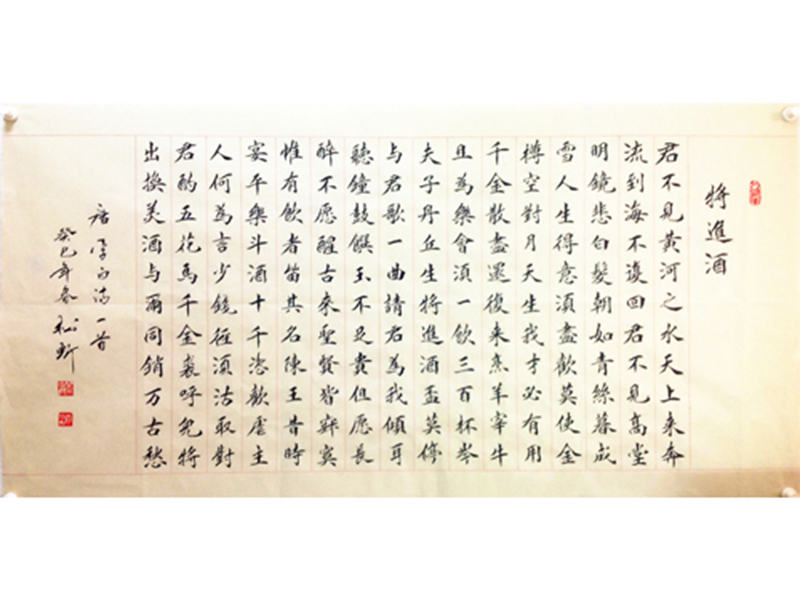 将進酒
君不見黄河之水天上来奔
流到海不復回君不見高堂
明鏡悲白髮朝如青絲暮成
雪人生得意須盡歡莫使金
樽空對月天生我才必有用
千金散盡還復来烹羊宰牛
且為樂會須一飲三百杯岑
夫子丹丘生将進酒盃莫停
与君歌一曲請君為我傾耳
聽鐘鼓饌玉不足貴但愿長
醉不愿醒古来聖賢皆寂寞
惟有飲者留其名陳王昔時
宴平樂斗酒十千恣歡虐主
人何為言少錢径須沽取對
君酌五花馬千金裘呼兒将
出換美酒与爾同銷万古愁
唐李白詩一首
癸巳年春